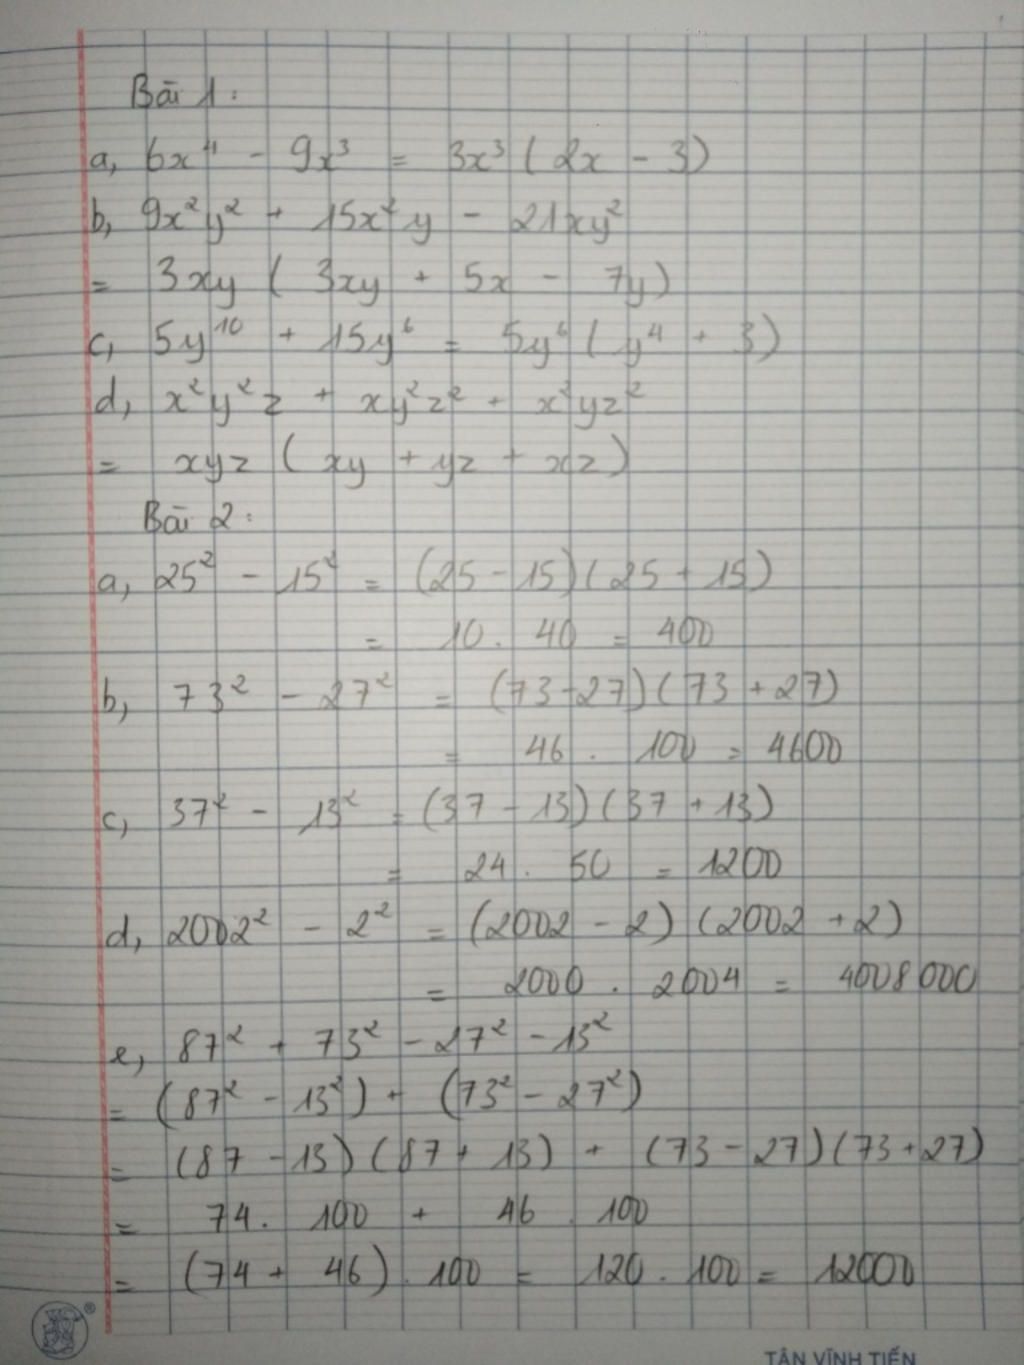 Bài 1:
a, 6x⁴ - 9x³ = 3x³ ( 2x - 3)
b, 9x²y² + 15x²y - 21xy²
= 3xy ( 3xy + 5x - 7y)
c, 5y¹⁰ + 15y⁶ = 5y⁶ ( y⁴ + 3)
d, x²y²z + xy²z² + x²yz²
= xyz ( xy + yz + xz)
Bài 2:
a, 25² - 15² = (25 - 15)(25 + 15)
= 10 . 40 = 400
b, 73² - 27² = (73 - 27)(73 + 27)
= 46 . 100 = 4600
c, 37² - 13² = (37 - 13)(37 + 13)
= 24 . 50 = 1200
d, 2002² - 2² = (2002 - 2) (2002 + 2)
= 2000 . 2004 = 4008000
e, 87² + 73² - 27² - 13²
= (87² - 13²) + (73² - 27²)
= (87 - 13)(87 + 13) + (73 - 27)(73 + 27)
= 74 . 100 + 46 . 100
= (74 + 46) . 100 = 120 . 100 = 12000
®
TÂN VĨNH TIẾN